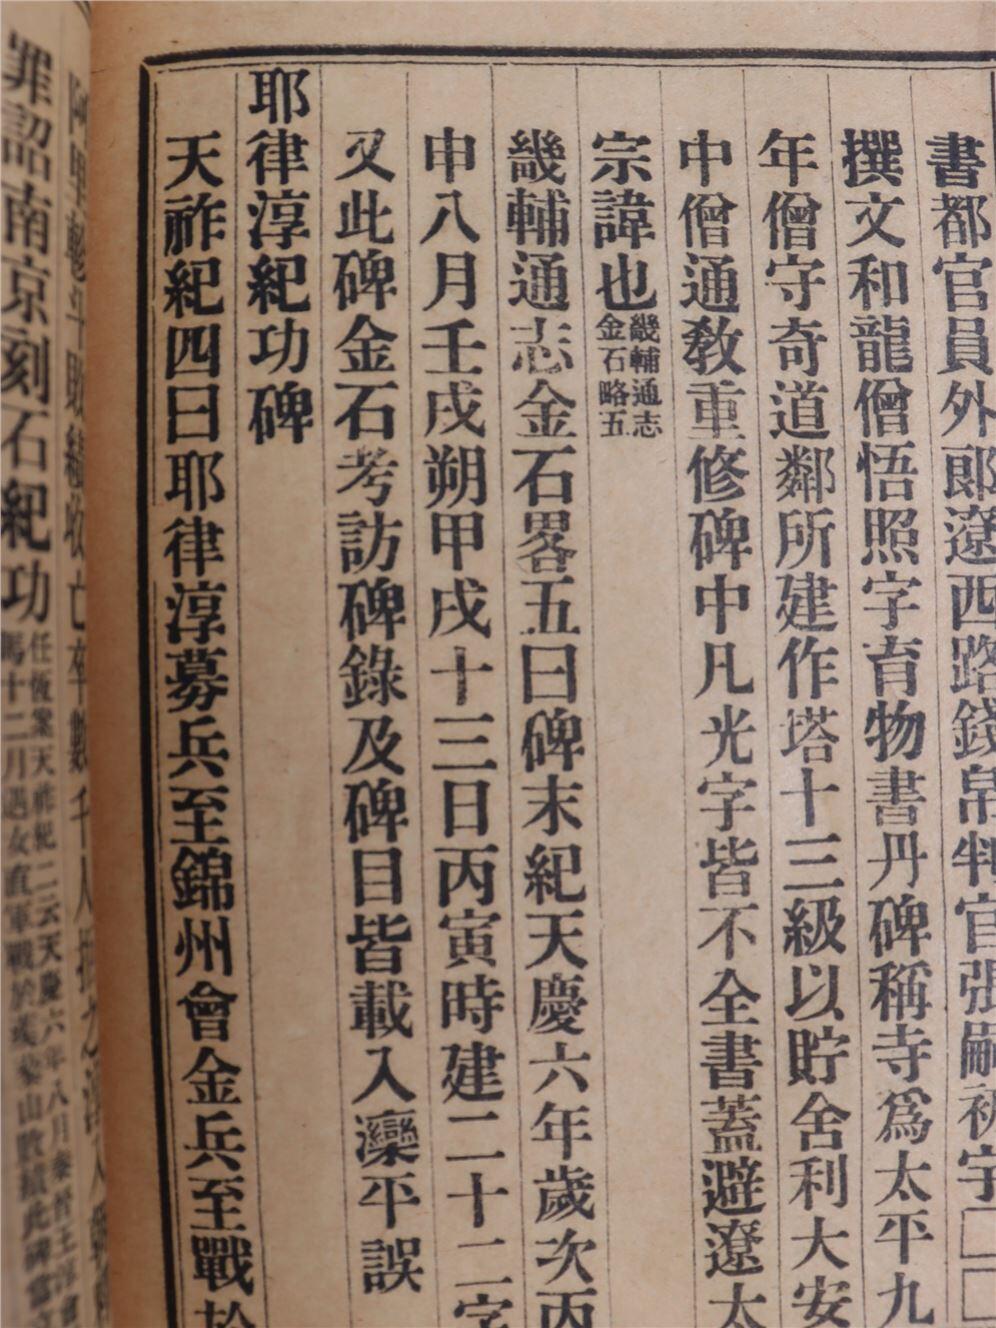 書都官員外郎遼西路錢帛判官張嗣初字□□
撰文和龍僧悟照字育物書丹碑稱寺爲太平九
年僧守奇道鄰所建作塔十三級以貯舍利大安
中僧通敎重修碑中凡光字皆不全書蓋避遼太
宗諱也畿輔通志
金石略五
畿輔通志金石畧五曰碑末紀天慶六年歲次丙
申八月壬戌朔甲戌十三日丙寅時建二十二字
又此碑金石考訪碑錄及碑目皆載入灤平誤
耶律淳紀功碑
天祚紀四曰耶律淳募兵至錦州會金兵至戰於
罪詔南京刻石紀功
任恆案天祚紀二云天慶六年八月秦晉王淳會